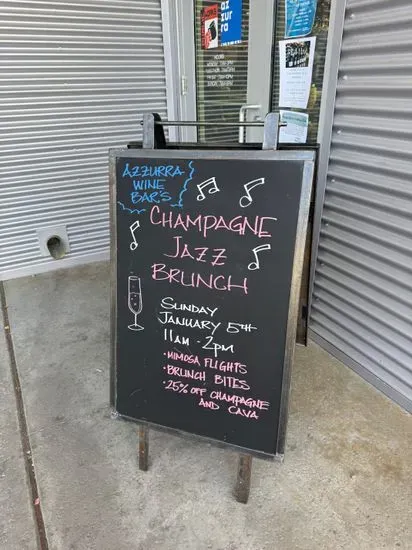 az
zur
ra
AZZURRA
WINE
BAR'S
CHAMPAGNE
JAZZ
BRUNCH
SUNDAY
JANUARY 5TH
11AM - 2PM
• MIMOSA FLIGHTS
• BRUNCH BITES
• 25% OFF CHAMPAGNE
AND CAVA